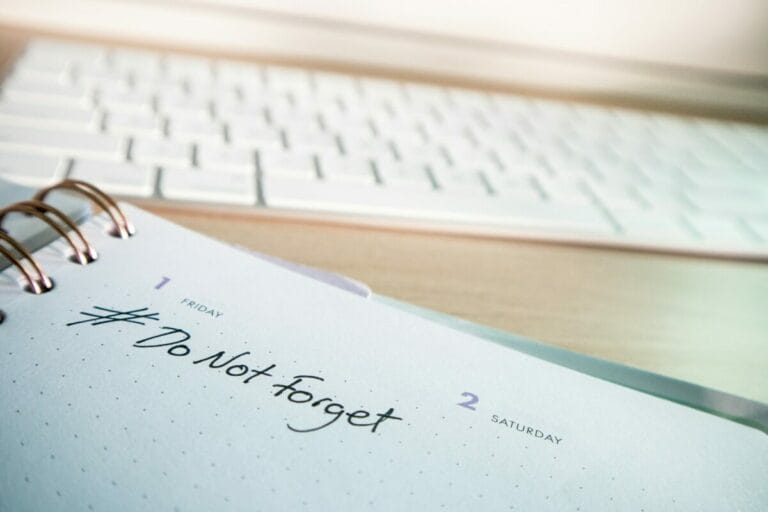 1 FRIDAY
# Do Not Forget
2 SATURDAY